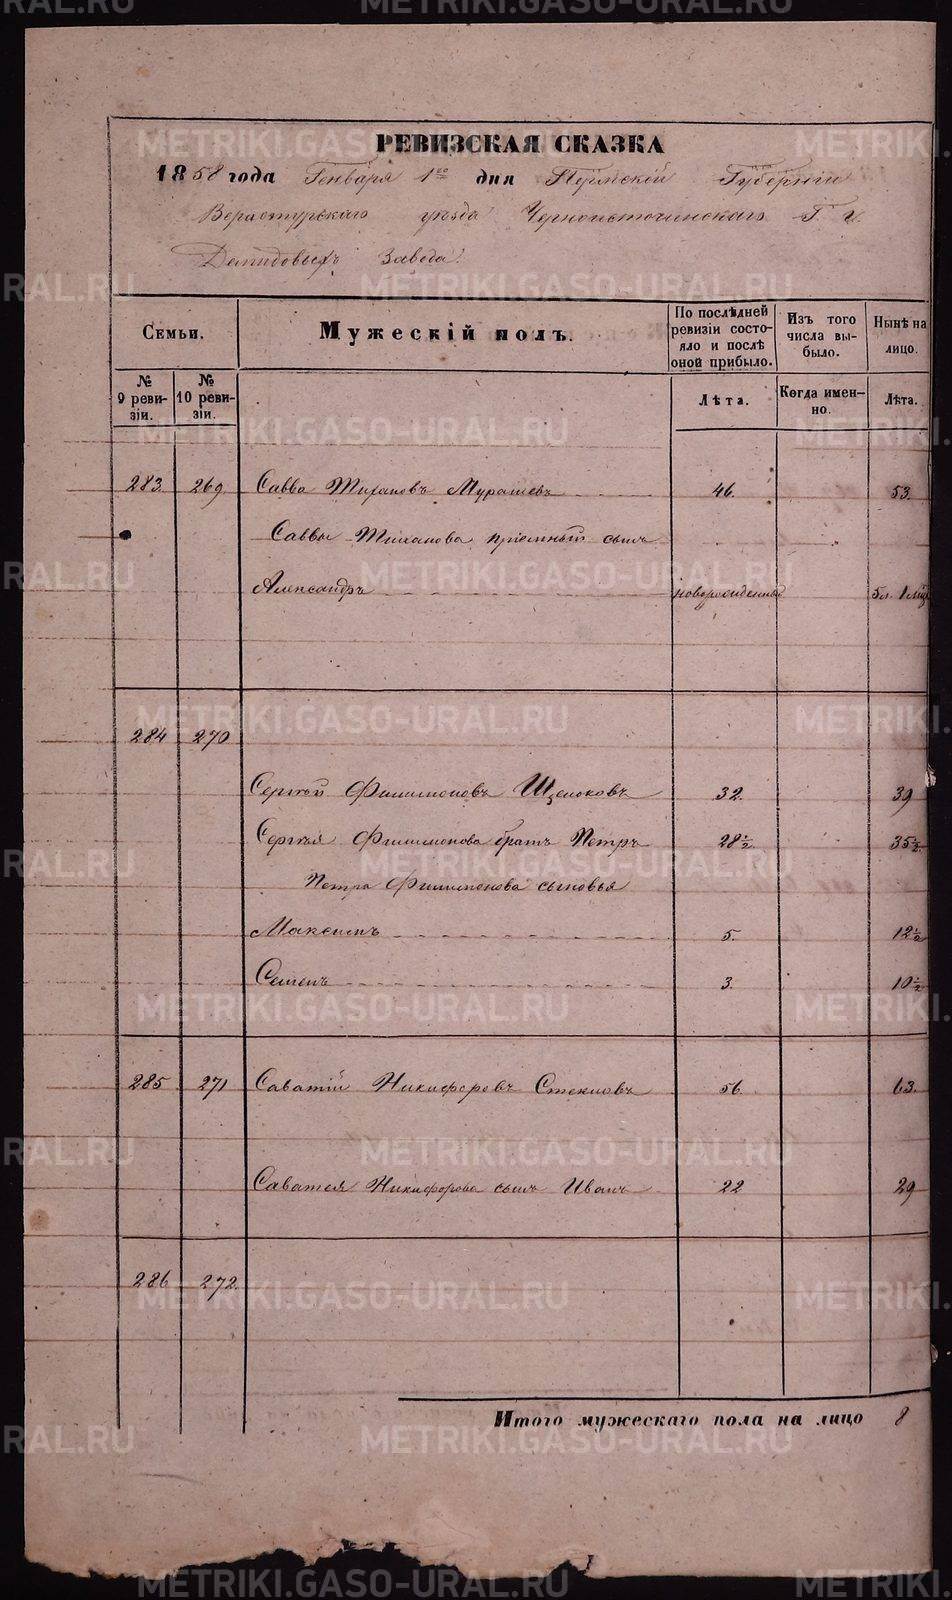 METRIKI.GASO-URAL.RU
РЕВИЗСКАЯ СКАЗКА
1858 года Генваря 1го дня Пермской Губернии
Верхотурскаго уезда Черноисточинскаго Г. г.
Демидовыхъ Завода.
Семьи.
Мужескій полъ.
По послѣдней ревизіи состояло и послѣ оной прибыло.
Изъ того числа выбыло.
Нынѣ на лицо.
№ 9 ревизіи.
№ 10 ревизіи.
Лѣта.
Когда именно.
Лѣта.
283. 269 Савва Тихановъ Мурашевъ 46. 53.
Саввы Тиханова пріемный сынъ
Александръ новорожденный 5 л. 1 мѣс.
284 270
Сергѣй Филимоновъ Щелоковъ 32. 39
Сергѣя Филимонова братъ Петръ 28½ 35½
Петра Филимонова сыновья
Максимъ 5. 12½
Семенъ 3. 10½
285 271 Саватій Никифоровъ Стекловъ 56. 63.
Саватея Никифорова сынъ Иванъ 22 29
286 272.
Итого мужескаго пола на лицо 8